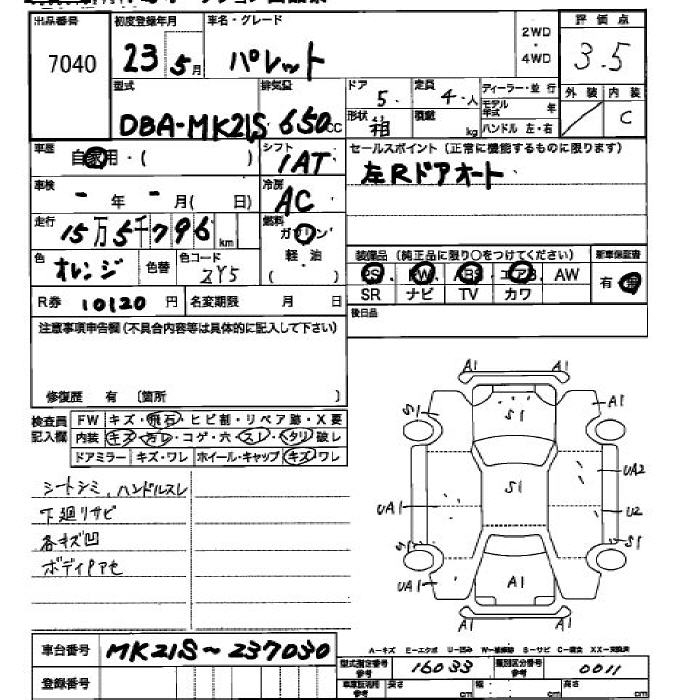 出品番号 初度登録年月 車名・グレード 2WD・4WD 評価点
7040 23 5月 パレット 3.5
型式 排気量 ドア 定員 ディーラー・並行 外装 内装
DBA-MK21S 650cc 5 4人 モデル年式 年 C
形状 積載 kg ハンドル 左・右
車歴 自家用・( ) シフト 1AT セールスポイント(正常に機能するものに限ります)
車検 - 年 - 月( 日) 冷房 AC 左Rドアオート
走行 15万5千796km 燃料 ガソリン
軽油
( )
色 オレンジ 色替 色コード ZY5 装備品(純正品に限り○をつけてください) 新車保証書
PS PW ABS エアB AW 有
R券 10120円 名変期限 月 日 SR ナビ TV カワ
注意事項申告欄(不具合内容等は具体的に記入して下さい) 後日品
修復歴 有 〔箇所 〕
検査員記入欄 FW キズ・飛石・ヒビ割・リペア跡・X要
内装 キズ・ヨゴレ・コゲ・穴・スレ・ヘタリ・破レ
ドアミラー キズ・ワレ ホイール・キャップ キズ・ワレ
シートシミ、ハンドルスレ
下廻リサビ
各キズ凹
ボディアセ
A1 A1
S1 S1 A1
S1 UA2
UA1 U2
S S1
UA1 A1
A1 A1
A-キズ E-エクボ U-凹み W-補修跡 S-サビ C-腐食 XX-交換済
車台番号 MK21S~237030
型式指定番号 参考 16033 類別区分番号 参考 0011
登録番号 参考 長さ cm 幅 cm 高さ cm